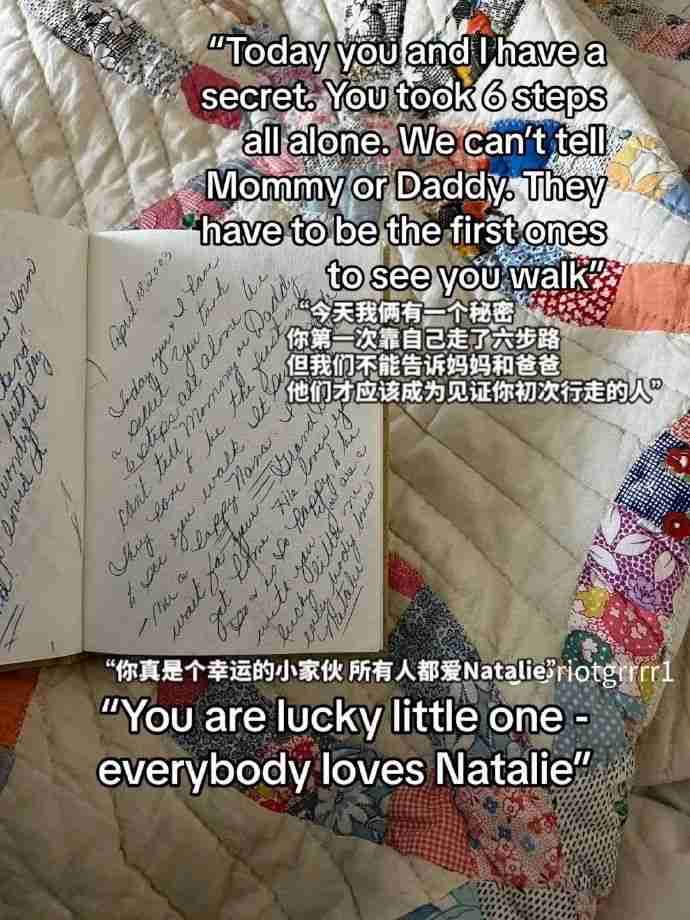 “Today you and I have a
secret. You took 6 steps
all alone. We can’t tell
Mommy or Daddy. They
have to be the first ones
to see you walk”
“今天我俩有一个秘密
你第一次靠自己走了六步路
但我们不能告诉妈妈和爸爸
他们才应该成为见证你初次行走的人”
birthday
wonderful
April 2003
Today you & I have
a secret. You took
6 steps all alone. We
can't tell Mommy or Daddy.
They have to be the first
to see you walk. It
me a happy Nana.
wait for your Grand
get home. He loves
see & so happy to be
with you. You are a
lucky little one -
everybody loves
Natalie
“你真是个幸运的小家伙 所有人都爱Natalie”
riotgrrrr1
“You are lucky little one -
everybody loves Natalie”